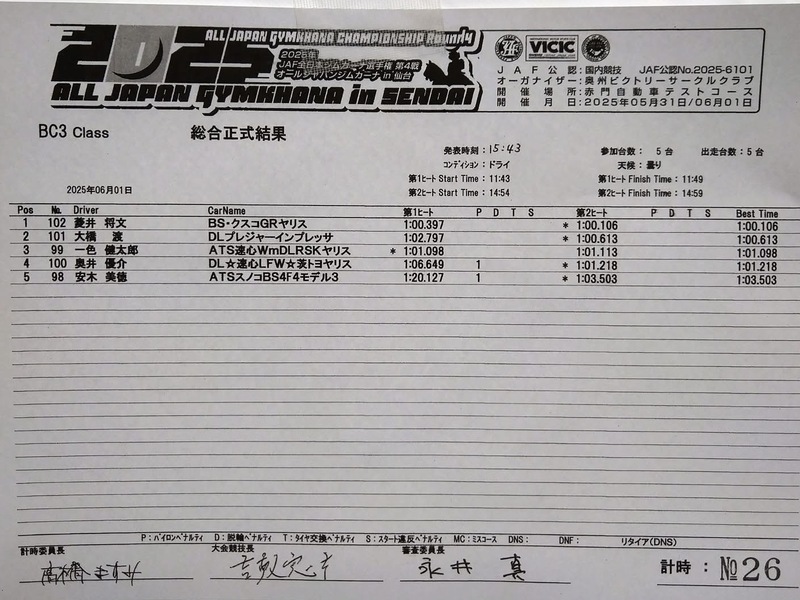 ALL JAPAN GYMKHANA CHAMPIONSHIP Round4
2025
2025年
JAF全日本ジムカーナ選手権 第4戦
オールジャパンジムカーナ in 仙台
ALL JAPAN GYMKHANA in SENDAI
VICIC
JAF公認:国内競技 JAF公認No.2025-6101
オーガナイザー:奥州ビクトリーサークルクラブ
開催場所:赤門自動車テストコース
開催月日:2025年05月31日/06月01日
BC3 Class 総合正式結果
発表時刻:15:43 参加台数: 5 台 出走台数:5 台
コンディション:ドライ 天候:曇り
第1ヒート Start Time : 11:43 第1ヒート Finish Time : 11:49
2025年06月01日 第2ヒート Start Time : 14:54 第2ヒート Finish Time : 14:59
Pos № Driver CarName 第1ヒート P D T S 第2ヒート P D T S Best Time
1 102 菱井 将文 BS・クスコGRヤリス 1:00.397 * 1:00.106 1:00.106
2 101 大橋 渡 DLプレジャーインプレッサ 1:02.797 * 1:00.613 1:00.613
3 99 一色 健太郎 ATS速心WmDLRSKヤリス * 1:01.098 1:01.113 1:01.098
4 100 奥井 優介 DL☆速心LFW☆茨トヨヤリス 1:06.649 1 * 1:01.218 1:01.218
5 98 安木 美徳 ATSスノコBS4F4モデル3 1:20.127 1 * 1:03.503 1:03.503
P:パイロンペナルティ D:脱輪ペナルティ T:タイヤ交換ペナルティ S:スタート違反ペナルティ MC:ミスコース DNS: DNF: リタイア(DNS)
計時委員長 大会競技長 審査委員長
高橋ますみ 永井 真
計時: №26